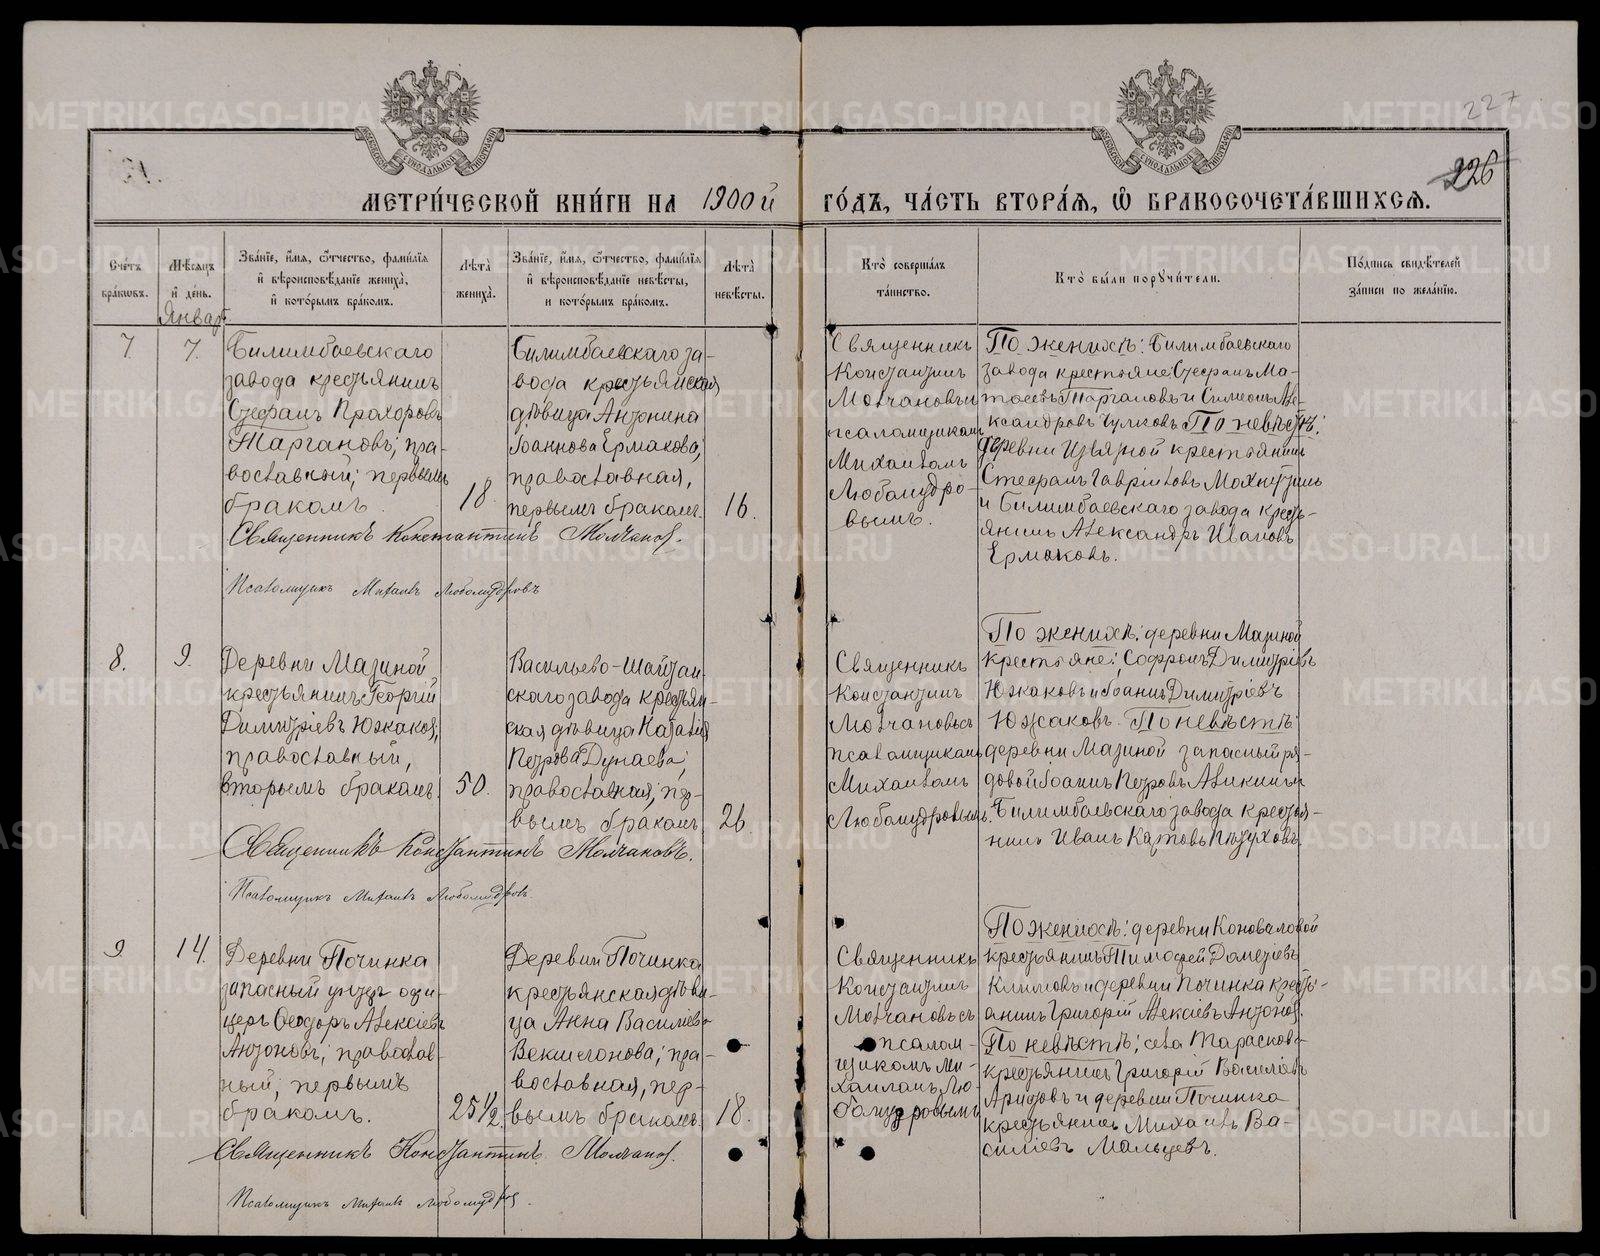 227
226
МЕТРИ́ЧЕСКОЙ КНИ́ГИ НА 1900й ГО́ДЪ, ЧА́СТЬ ВТОРА́Я, Ѽ БРАКОСОЧЕТА́ВШИХСЯ.
Сче́тъ бра́ковъ.
Мѣ́сяцъ и де́нь.
Зва́нїе, и́мя, ѻ́тчество, фами́лїя и вѣроисповѣ́данїе жениха̀, и кото́рымъ бра́комъ.
Лѣта̀ жениха̀.
Зва́нїе, и́мя, ѻ́тчество, фами́лїя и вѣроисповѣ́данїе невѣ́сты, и кото́рымъ бра́комъ.
Лѣта̀ невѣ́сты.
Кто̀ соверша́лъ та́инство.
Кто̀ бы́ли поручи́тели.
По́дпись свидѣ́телей за́писи по жела́нїю.
Январь
7.
7.
Билимбаевскаго
завода крестьянинъ
Стефанъ Прохоровъ
Таргановъ; пра-
вославный; первымъ
бракомъ.
18.
Билимбаевскаго за-
вода крестьянская
дѣвица Антонина
Іоаннова Ермакова;
православная,
первымъ бракомъ.
16.
Священникъ
Константинъ
Молчановъ и
псаломщикомъ
Михаиломъ
Любомудро-
вымъ.
По женихѣ: Билимбаевскаго
завода крестьяне: Стефанъ Ма-
тѳеевъ Таргановъ и Симеонъ Але-
ксандровъ Чулковъ. По невѣстѣ:
деревни Извѣздной крестьянинъ
Стефанъ Гавріиловъ Махнутинъ
и Билимбаевскаго завода кресть-
янинъ Александръ Ивановъ
Ермаковъ.
Священникъ Константинъ Молчановъ.
Псаломщикъ Михаилъ Любомудровъ
8.
9.
Деревни Мазиной
крестьянинъ Георгій
Димитріевъ Южаковъ,
православный,
вторымъ бракомъ.
50.
Васильево-Шайтан-
скаго завода крестьян-
ская дѣвица Наталія
Петрова Дунаева;
православная; пер-
вымъ бракомъ.
26.
Священникъ
Константинъ
Молчановъ съ
псаломщикомъ
Михаиломъ
Любомудровымъ.
По женихѣ: деревни Мазиной
крестьяне: Софронъ Димитріевъ
Южаковъ и Іоаннъ Димитріевъ
Южаковъ. По невѣстѣ:
деревни Мазиной запасный ря-
довой Іоаннъ Петровъ Аликинъ и
Билимбаевскаго завода крестья-
нинъ Иванъ Карповъ Пѣтуховъ.
Священникъ Константинъ Молчановъ.
Псаломщикъ Михаилъ Любомудровъ.
9
14.
Деревни Починка
запасный унтеръ офи-
церъ Ѳеодоръ Алексіевъ
Антоновъ; православ-
ный; первымъ
бракомъ.
25½.
Деревни Починка
крестьянская дѣви-
ца Анна Василіева
Векшегонова; пра-
вославная, пер-
вымъ бракомъ.
18.
Священникъ
Константинъ
Молчановъ съ
псалом-
щикомъ Ми-
хаиломъ Лю-
бомудровымъ
По женихѣ: деревни Коноваловой
крестьянинъ Тимофей Дометіевъ
Климовъ и деревни Починка кресть-
янинъ Григорій Алексіевъ Антоновъ.
По невѣстѣ; села Тарасково
крестьянинъ Григорій Василіевъ
Аридовъ и деревни Починка
крестьянинъ Михаилъ Ва-
силіевъ Мальцевъ.
Священникъ Константинъ Молчановъ.
Псаломщикъ Михаилъ Любомудровъ.
METRIKI.GASO-URAL.RU